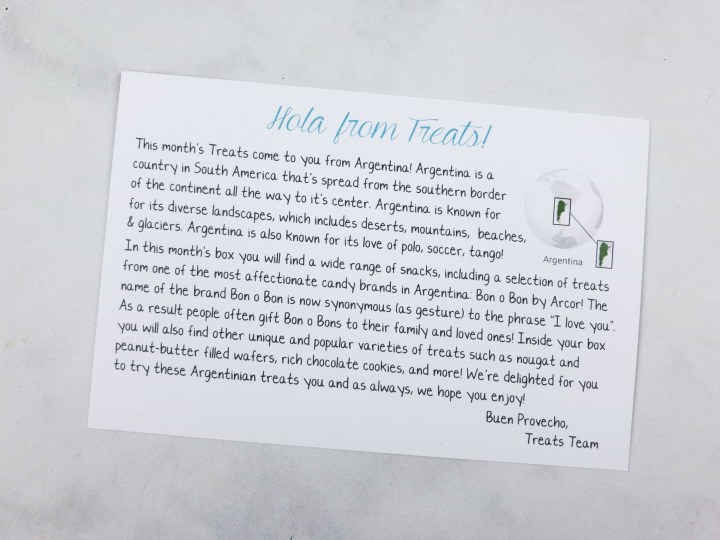 Hola from Treats!
This month's Treats come to you from Argentina! Argentina is a
country in South America that's spread from the southern border
of the continent all the way to it's center. Argentina is known for
for its diverse landscapes, which includes deserts, mountains, beaches,
& glaciers. Argentina is also known for its love of polo, soccer, tango!
Argentina
In this month's box you will find a wide range of snacks, including a selection of treats
from one of the most affectionate candy brands in Argentina: Bon o Bon by Arcor! The
name of the brand Bon o Bon is now synonymous (as gesture) to the phrase "I love you".
As a result people often gift Bon o Bons to their family and loved ones! Inside your box
you will also find other unique and popular varieties of treats such as nougat and
peanut-butter filled wafers, rich chocolate cookies, and more! We're delighted for you
to try these Argentinian treats you and as always, we hope you enjoy!
Buen Provecho,
Treats Team